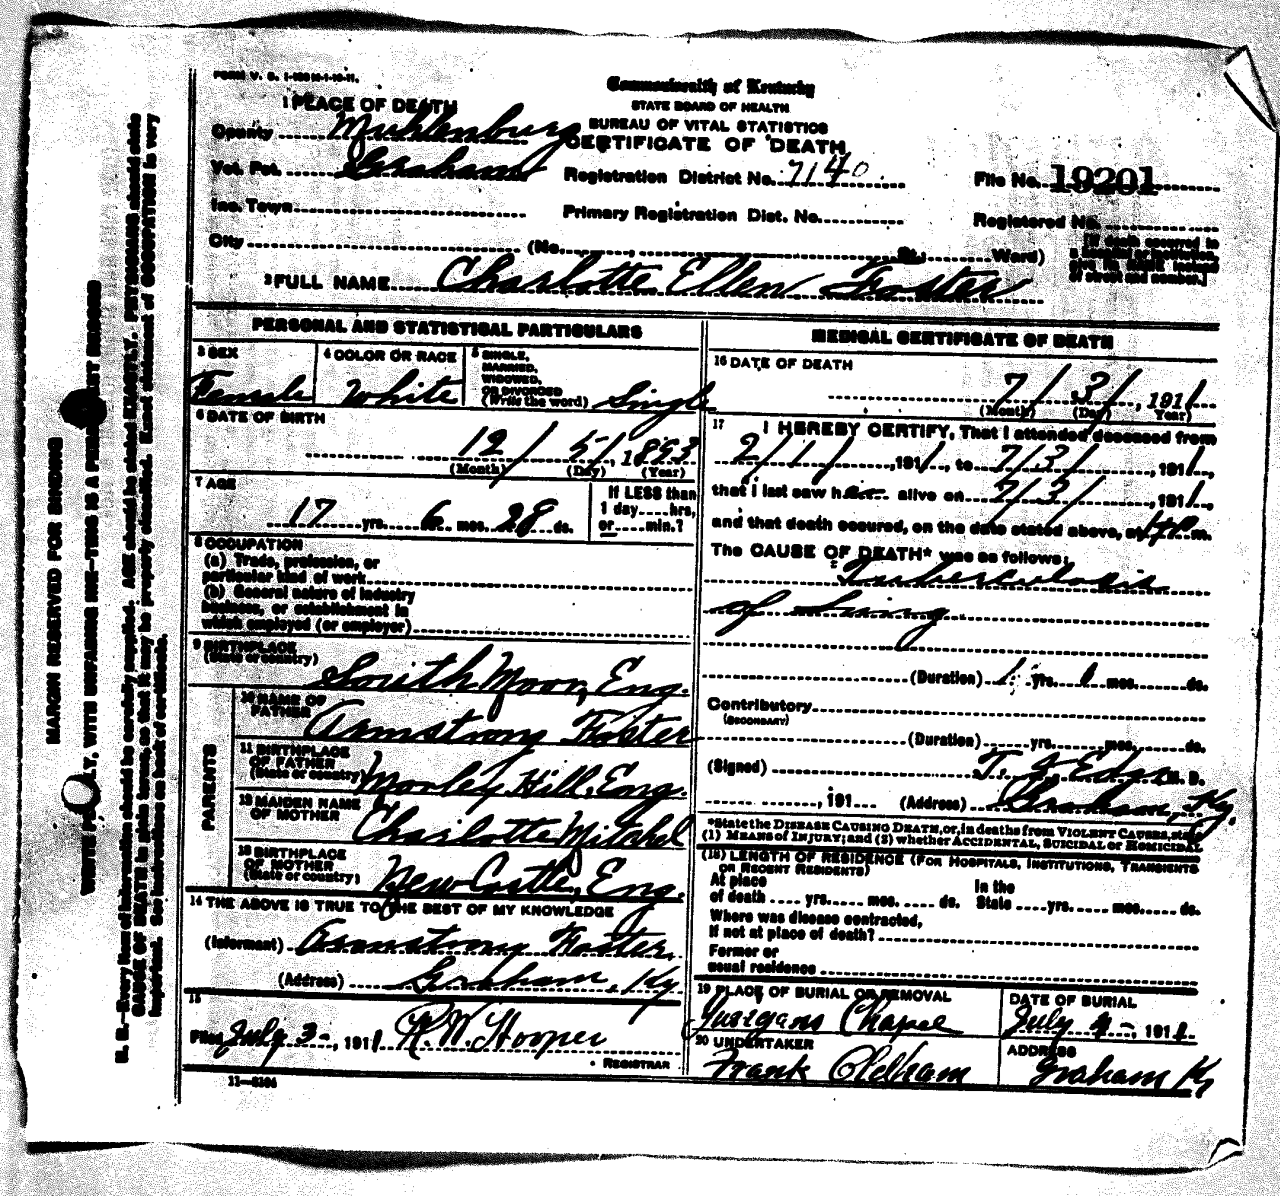 FORM V. S.
Commonwealth of Kentucky
STATE BOARD OF HEALTH
BUREAU OF VITAL STATISTICS
CERTIFICATE OF DEATH
1 PLACE OF DEATH
County Muhlenburg
Vot. Pct. Graham
Registration District No. 7140
File No. 19201
Inc. Town
Primary Registration Dist. No.
Registered No.
City (No. , St.; Ward)
[If death occurred in
a hospital or institution,
of street and number.]
2 FULL NAME Charlotte Ellen Foster
PERSONAL AND STATISTICAL PARTICULARS
3 SEX
Female
4 COLOR OR RACE
White
5 SINGLE,
MARRIED,
WIDOWED,
OR DIVORCED
(Write the word) Single
6 DATE OF BIRTH
12 / 5 /, 1893
(Month) (Day) (Year)
7 AGE
17 yrs. 6 mos. 28 ds.
If LESS than
1 day hrs,
or min.?
8 OCCUPATION
(a) Trade, profession, or
particular kind of work
(b) General nature of industry
business, or establishment in
which employed (or employer)
9 BIRTHPLACE
(State or country)
South Moor, Eng.
PARENTS
10 NAME OF
FATHER
Armstrong Foster
11 BIRTHPLACE
OF FATHER
(State or country)
Morley Hill, Eng.
12 MAIDEN NAME
OF MOTHER
Charlotte Mitchel
13 BIRTHPLACE
OF MOTHER
(State or country)
New Castle, Eng.
14 THE ABOVE IS TRUE TO THE BEST OF MY KNOWLEDGE
(Informant) Armstrong Foster,
(Address) Graham, Ky
15
Filed July 3-, 1911 H. W. Hooper
REGISTRAR
11-5104
MEDICAL CERTIFICATE OF DEATH
16 DATE OF DEATH
7/ 3/, 1911
(Month) (Day) Year)
17 I HEREBY CERTIFY, That I attended deceased from
2/1/, 1911, to 7/3/, 1911,
that I last saw her alive on 7/3/, 1911,
and that death occured, on the date stated above, at m.
The CAUSE OF DEATH* was as follows:
Tuberculosis
of Lung
(Duration) 1 yrs. mos. ds.
Contributory
(SECONDARY)
(Duration) yrs. mos. ds.
(Signed) M. D.
, 191 (Address) Graham, Ky.
*State the DISEASE CAUSING DEATH, or, in deaths from VIOLENT CAUSES, state
(1) MEANS OF INJURY; and (2) whether ACCIDENTAL, SUICIDAL or HOMICIDAL
(18) LENGTH OF RESIDENCE (FOR HOSPITALS, INSTITUTIONS, TRANSIENTS
OR RECENT RESIDENTS)
At place
of death yrs. mos. ds.
In the
State yrs. mos. ds.
Where was disease contracted,
If not at place of death?
Former or
usual residence
19 PLACE OF BURIAL OR REMOVAL
DATE OF BURIAL
July 4-, 1911
20 UNDERTAKER
Frank Oldham
ADDRESS
Graham Ky
MARGIN RESERVED FOR BINDING
WRITE PLAINLY, WITH UNFADING INK—THIS IS A PERMANENT RECORD
N. B.—Every item of information should be carefully supplied. AGE should be stated EXACTLY. PHYSICIANS should state
CAUSE OF DEATH in plain terms, so that it may be properly classified. Exact statement of OCCUPATION is very
important. See instructions on back of certificate.